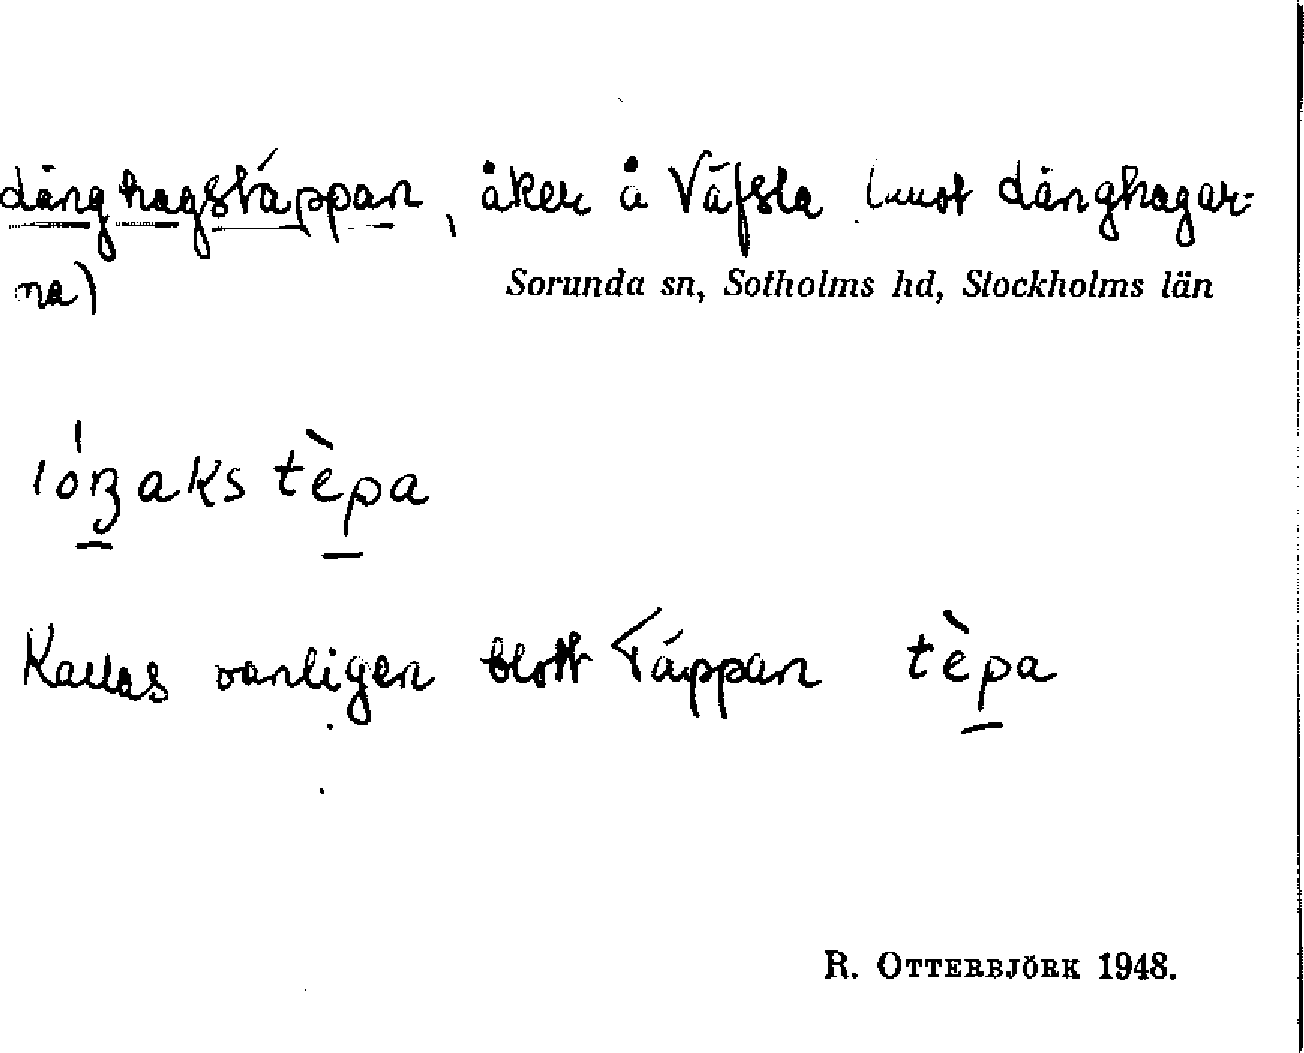 Långhagstäppan, åker å Väfsla (mot Långhagar-
na)
Sorunda sn, Sotholms hd, Stockholms län
tèpa
Kallas vanligen blott Täppan tèpa
R. OTTERBJÖRK 1948.